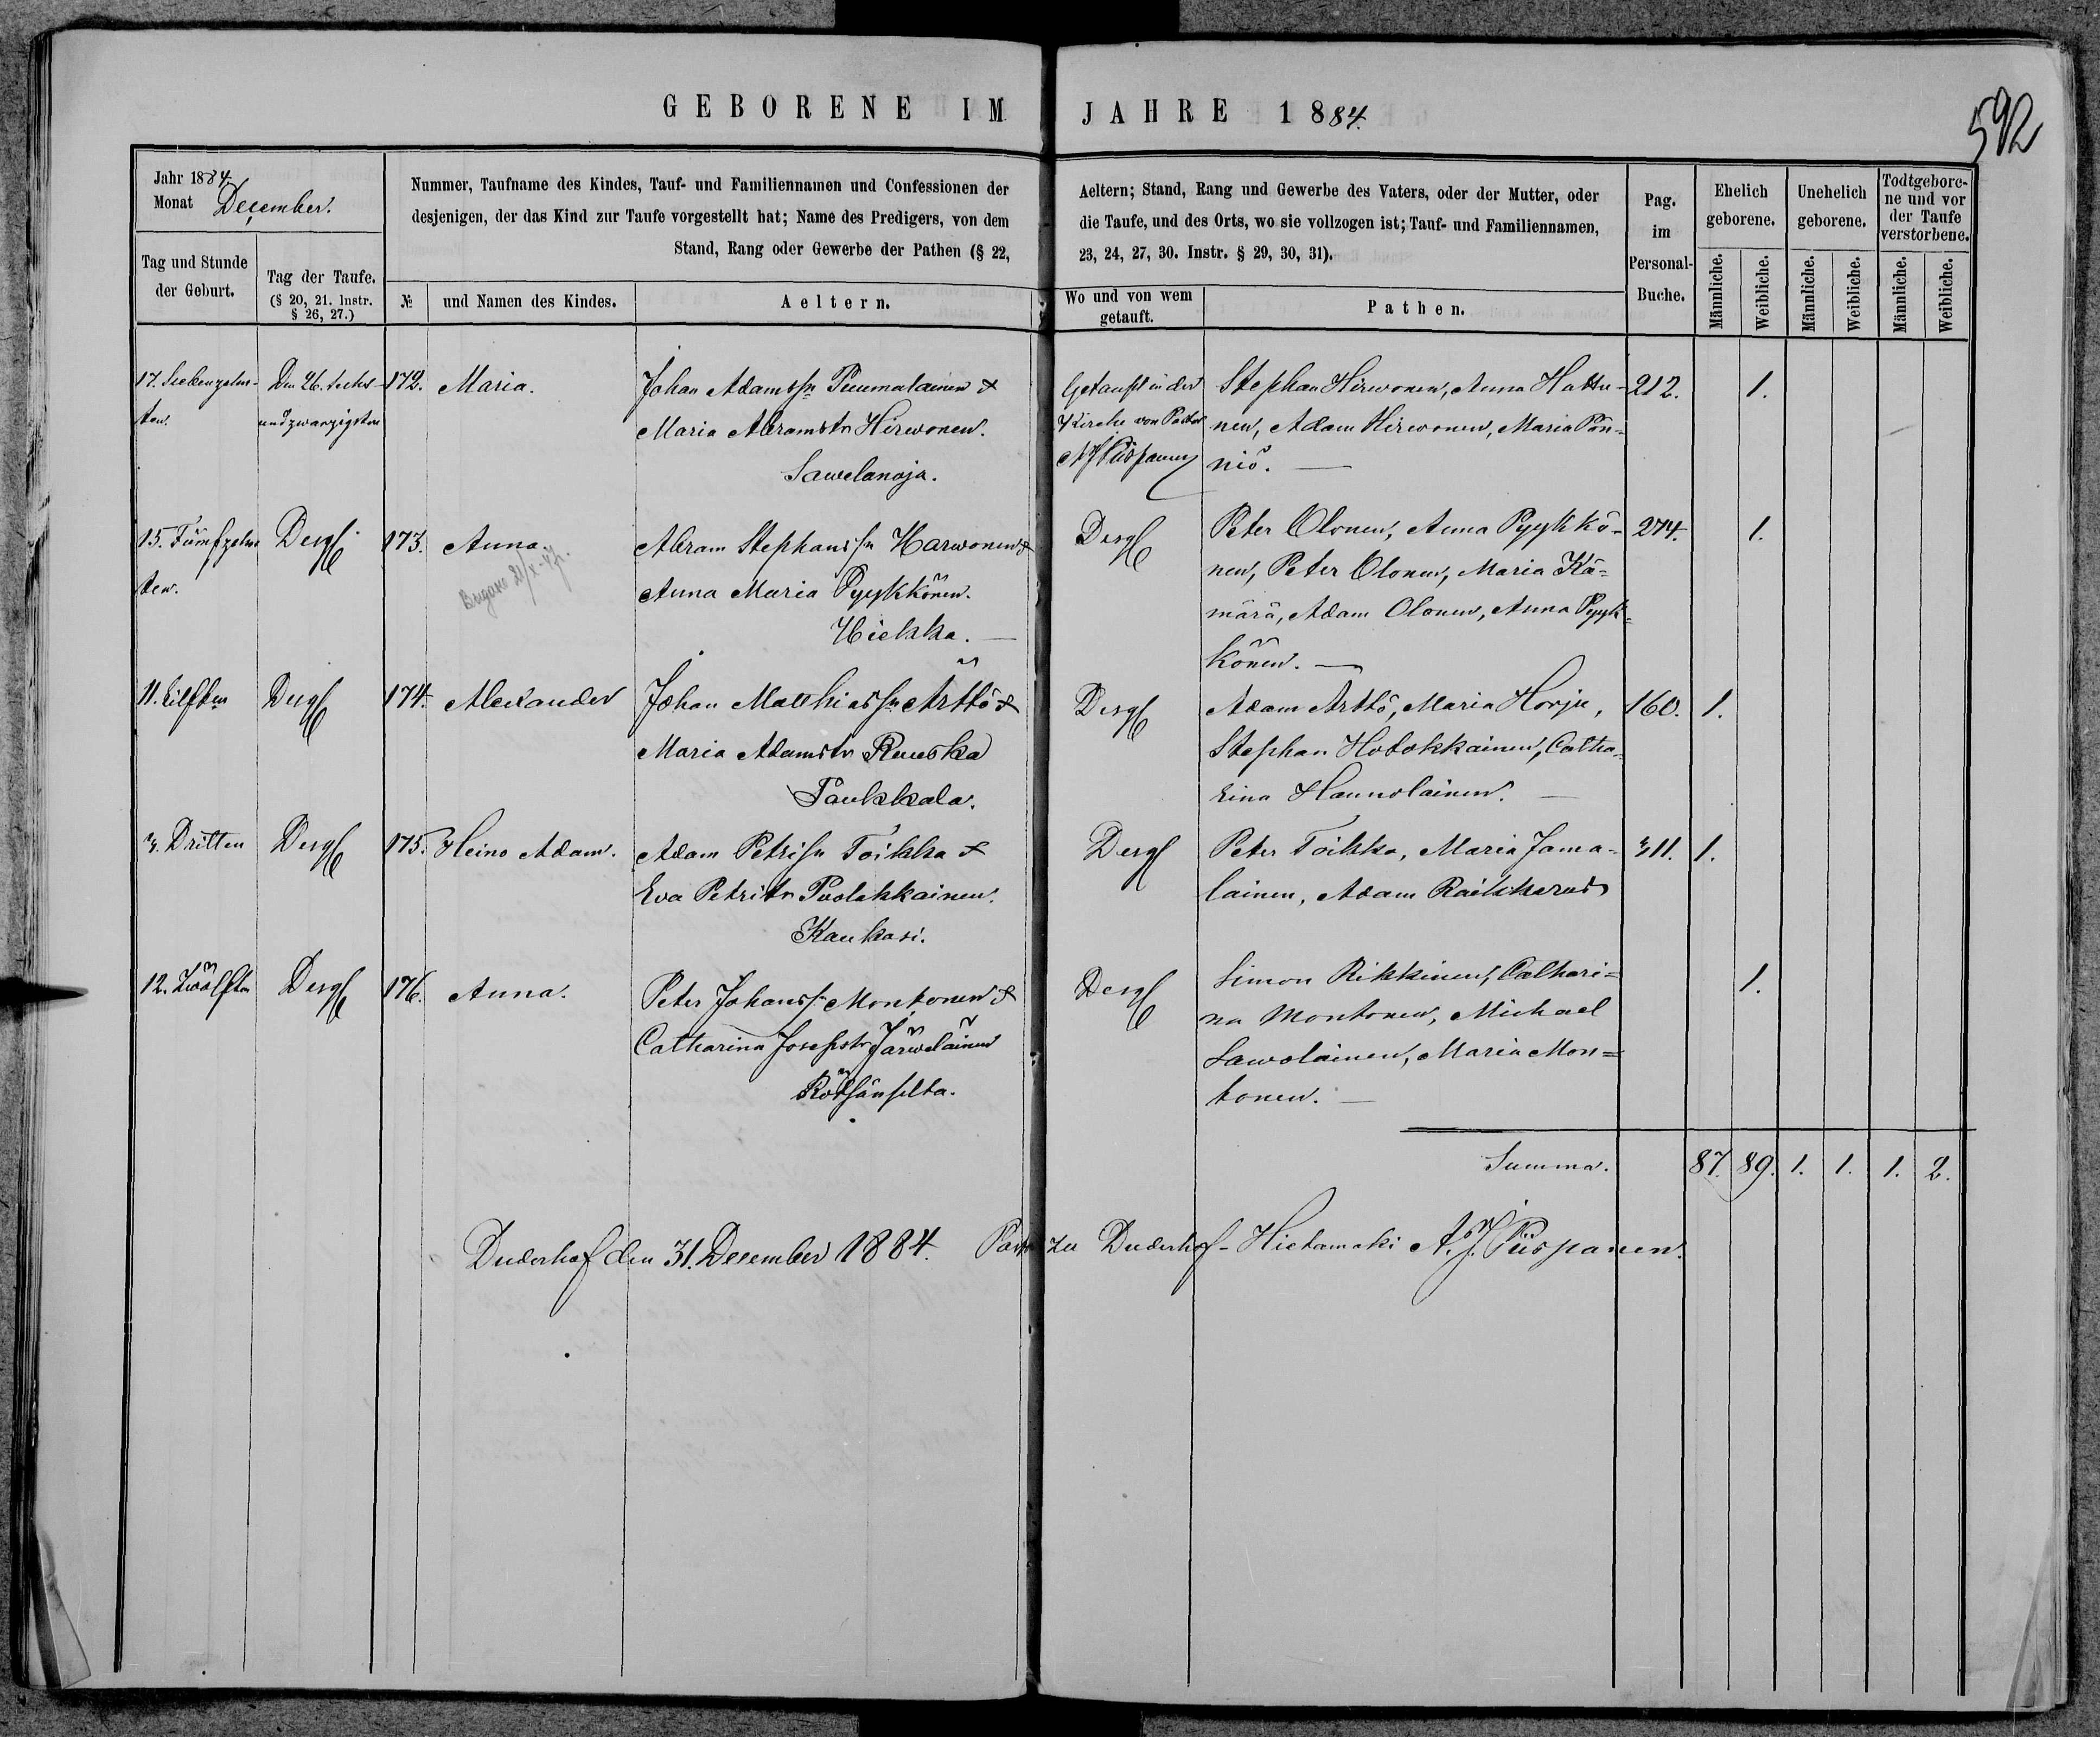 GEBORENE IM JAHRE 1884.
592
Jahr 1884
Monat December.
Nummer, Taufname des Kindes, Tauf- und Familiennamen und Confessionen der
desjenigen, der das Kind zur Taufe vorgestellt hat; Name des Predigers, von dem
Stand, Rang oder Gewerbe der Pathen (§ 22,
Aeltern; Stand, Rang und Gewerbe des Vaters, oder der Mutter, oder
die Taufe, und des Orts, wo sie vollzogen ist; Tauf- und Familiennamen,
23, 24, 27, 30. Instr. § 29, 30, 31).
Pag.
im
Personal-
Buche.
Ehelich
geborene.
Unehelich
geborene.
Todtgebore-
ne und vor
der Taufe
verstorbene.
Tag und Stunde
der Geburt.
Tag der Taufe.
(§ 20, 21. Instr.
§ 26, 27.)
№
und Namen des Kindes.
Aeltern.
Wo und von wem
getauft.
Pathen.
Männliche.
Weibliche.
Männliche.
Weibliche.
Männliche.
Weibliche.
17. Siebenzehn-
ten.
Den 26. sechs-
undzwanzigsten
172.
Maria.
Johan Adamssn Puumalainen &
Maria Abramstr Hirwonen.
Sawelanoja.
Getauft in der
Kirche von Pastor
A J Piispanen
Stephan Hirwonen, Anna Hattu-
nen, Adam Hirwonen, Maria Pön-
niö.
212.
1.
15. Fünfzehn
ten.
Desgl
173.
Anna.
Abram Stephanssn Harwonen &
Anna Maria Pyykkönen.
Hiekka.
Desgl
Peter Olonen, Anna Pyykkö-
nen, Peter Olonen, Maria Kä-
märä, Adam Olonen, Anna Pyyk-
könen.
274.
1.
11. Eilften
Desgl
174.
Alexander
Johan Matthiassn Arttö &
Maria Adamstr Ruuska
Paukkala.
Desgl
Adam Arttö, Maria Horju,
Stephan Hotokkainen, Catha-
rina Haunolainen.
160.
1.
3. Dritten
Desgl
175.
Heino Adam.
Adam Petrisn Toikka &
Eva Petritr Puolakkainen.
Kaukasi.
Desgl
Peter Toikka, Maria Jama-
lainen, Adam Raikkerus
311.
1.
12. Zwölften
Desgl
176.
Anna.
Peter Johanss Montonen &
Catharina Josephstr Järweläinen
Desgl
Simon Rikkinen, Cathari-
na Montonen, Michael
Sawolainen, Maria Mon-
tonen.
1.
Summa.
87. 89. 1. 1. 1. 2.
Duderhof den 31. December 1884. Pastor zu Duderhof-Hietamäki A. J. Piispanen.